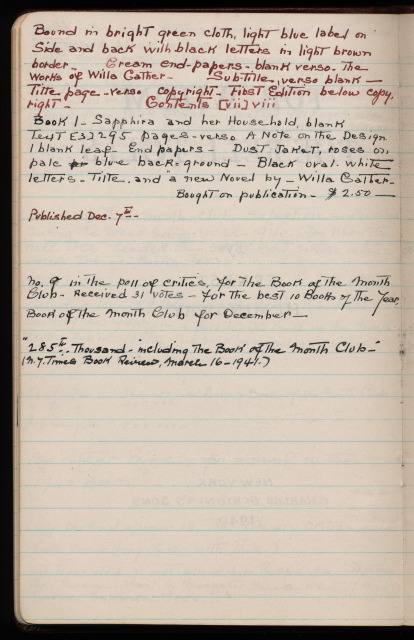 Bound in bright green cloth, light blue label on
Side and back with black letters in light brown
border - Cream end-papers - blank verso. The
Works of Willa Cather - Sub-Title, verso blank -
Title page - verso copyright - First Edition below copy,
right - Contents [vii] viii
Book 1 - Sapphira and her Household, blank
Text [3] 295 pages - verso A Note on the Design
1 blank leaf - End papers - Dust Jaket, roses on
pale blue back-ground - Black oval. white
letters - Tilte, and "a new Novel by - Willa Cather -
Bought on publication - $2.50 -
Published Dec. 7th -
No. 9 in the poll of critics, for the Book of the Month
Club - Received 31 votes - for the best 10 Books of the Year,
Book of the Month Club for December -
"285th Thousand - including the Book of the Month Club -"
(N.Y. Times Book Review, March 16 - 1941.)
NEW YORK
CHARLES SCRIBNER'S SONS
1940